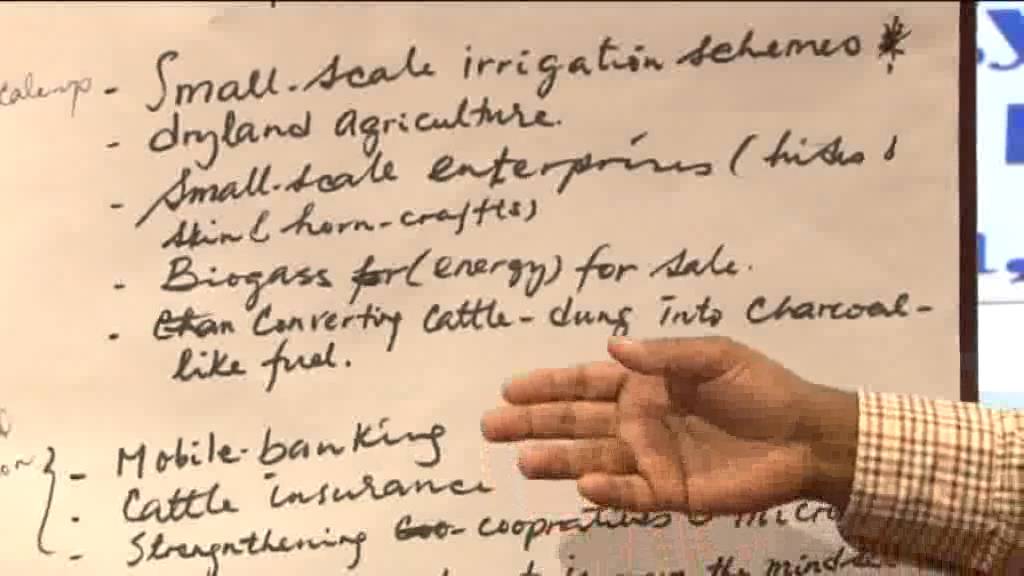 - Small-scale irrigation schemes *
- dryland agriculture.
- Small-scale enterprises (hides &
skin & horn-crafts)
- Biogass for (energy) for sale.
- Chan Converting Cattle-dung into Charcoal-
like fuel.
- Mobile-banking
- Cattle insurance
- Strengnthening Coo- coopratives & micro
the mind